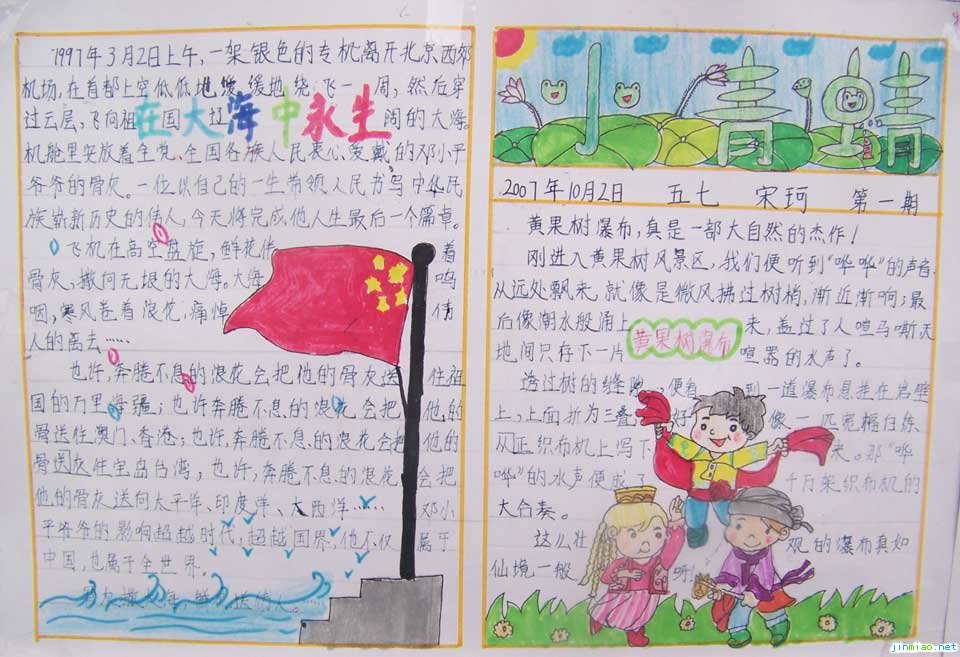 1997年3月2日上午,一架银色的专机离开北京西郊
机场,在首都上空低低地,缓缓地绕飞一周,然后穿
过云层,飞向祖国辽阔的大海。
在大海中永生
机舱里安放着全党、全国各族人民衷心爱戴的邓小平
爷爷的骨灰。一位以自己的一生带领人民书写中华民
族崭新历史的伟人,今天将完成他人生最后一个篇章。
飞机在高空盘旋,鲜花伴着
骨灰,撒向无垠的大海。大海呜
咽,寒风卷着浪花,痛悼伟
人的离去……
也许,奔腾不息的浪花会把他的骨灰送往祖
国的万里海疆;也许奔腾不息的浪花会把他的
骨送往澳门、香港;也许,奔腾不息的浪花会把他的
骨送灰往宝岛台湾;也许,奔腾不息的浪花会把
他的骨灰送向太平洋、印度洋、大西洋……邓小
平爷爷的影响超越时代,超越国界,他不仅属于
中国,也属于全世界。
小青蛙
2007年10月2日 五七 宋珂 第一期
黄果树瀑布,真是一部大自然的杰作!
刚进入黄果树风景区,我们便听到“哗哗”的声音
从远处飘来,就像是微风拂过树梢,渐近渐响;最
后像潮水般涌上来,盖过了人喧马嘶天
黄果树瀑布
地间只存下一片喧嚣的水声了。
透过树的缝隙,便看到一道瀑布悬挂在岩壁
上,上面折为三叠,好像一匹宽幅白练
从正织布机上泻下来。那“哗
哗”的水声便成了千万架织布机的
大合奏。
这么壮观的瀑布真如
仙境一般呀!
jinmiao.net